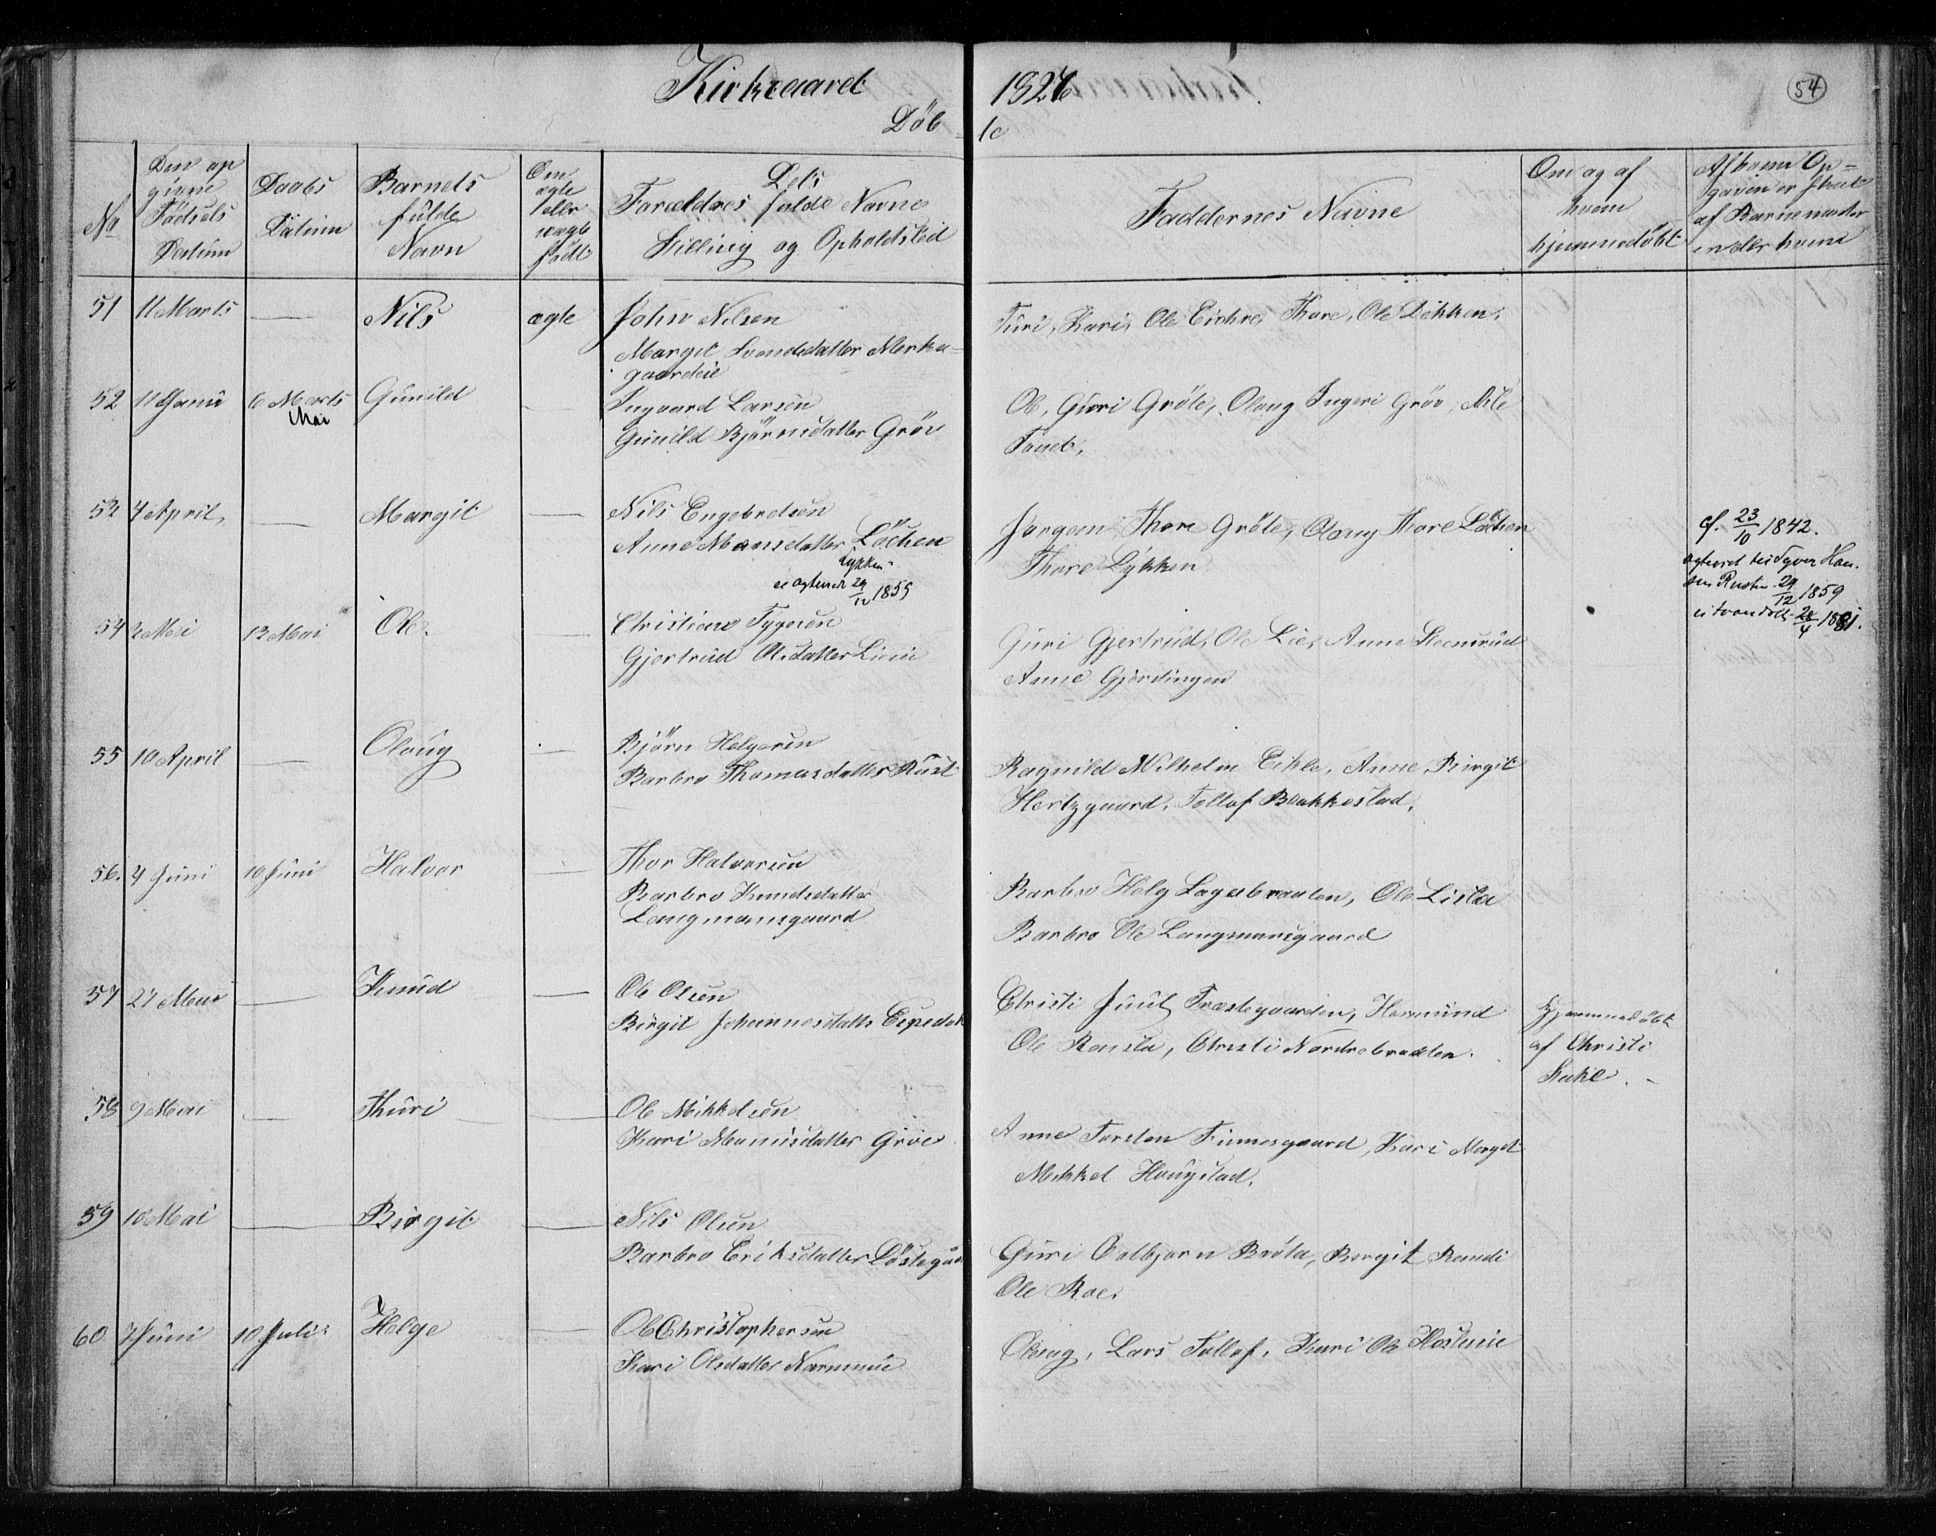 Kirkeaaret 1826
54
Døb - te
No
Den op
givne
Fødsels
Datum
Daabs
Datum
Barnets
fulde
Navn
Om
ægte
eller
uægte
født
Dets
Forældres fulde Navne
Stilling og Opholdsted
Faddernes Navne
Om og af
hvem
hjemmedøbt
Af hvem Op=
gaven er skeet
af Barnemoder
en eller hvem
51 11 Marts — Nils ægte John Nilsen
Margit Svendsdatter Merka=
gaardeie
Turi, Kari, Ole Tore, Ole Døkken,
52 11 6 Marts Gunild — Ingvard Larsen
Mai
Gunild Bjørnsdatter Gröv
Ole, Guri Gröte, Olaug Ingeri Gröv, Nils
53 4 April, — Margit — Nils Engebretsen
Anne Monsdatter Løchen
Løkken
29/12 1855
Jørgen Thore Gröte, Olaug Thore Løchen
Thore Løkken
cf. 23/10 1842.
Syver Han-
sen Rusten 29/12 1859
28/4 1881.
54 2 Mai 12 Mai Ole — Christian Tygesen
Gjertrud Olsdatter Lieie
Guri Gjertrud, Ole Lie, Anne Steensrud
Anne Gjerdingen
55 10 April — Olaug — Bjørn Helgesen
Barbro Thomasdatter Rust
Ragnild Wilhelm Eikle, Anne, Birgit
Hertzgaard, Tollof Blakkestad,
56. 4 Juni 10 Juni Halvor — Thor Halvorsen
Barbro Knudsdatter
Langmansgaard
Barbro Helg Lagesbraaten, Ole Lista
Barbro Ole Langmansgaard
57 27 Mai — Knud — Ole Olsen
Birgit Johannesdatter Espedok
Christi Juul Træstegaarden, Hermund
Ole Rousta, Christi Nordrebraaten.
Hjemmedøbt
af Christi
58 9 Mai — Thuri — Ole Mikkelsen
Kari Monsdatter Gröv
Anne Torsten Finnesgaard, Kari Margit
Mikkel Haugstad.
59 10 Mai — Birgit — Nils Olsen
Barbro Eriksdatter Løstegaar
Guri Bröta, Birgit Randi
Ole Roe.
60 7 Juni 10 Juli Helge — Ole Christophersen
Kari Olsdatter
Olaug, Lars Tollof, Kari Ole